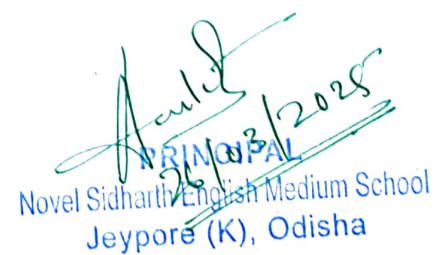 26/03/2025
PRINCIPAL
Novel Sidharth English Medium School
Jeypore (K), Odisha